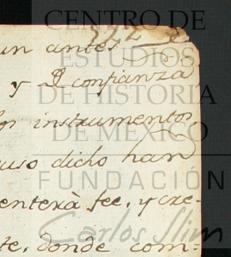 CENTRO DE
ESTUDIOS
DE HISTORIA
DE MEXICO
FUNDACIÓN
Carlos Slim
un antes
y confianza
los instrumentos
uso dicho han
enterà fee, y cre-
te, donde com-